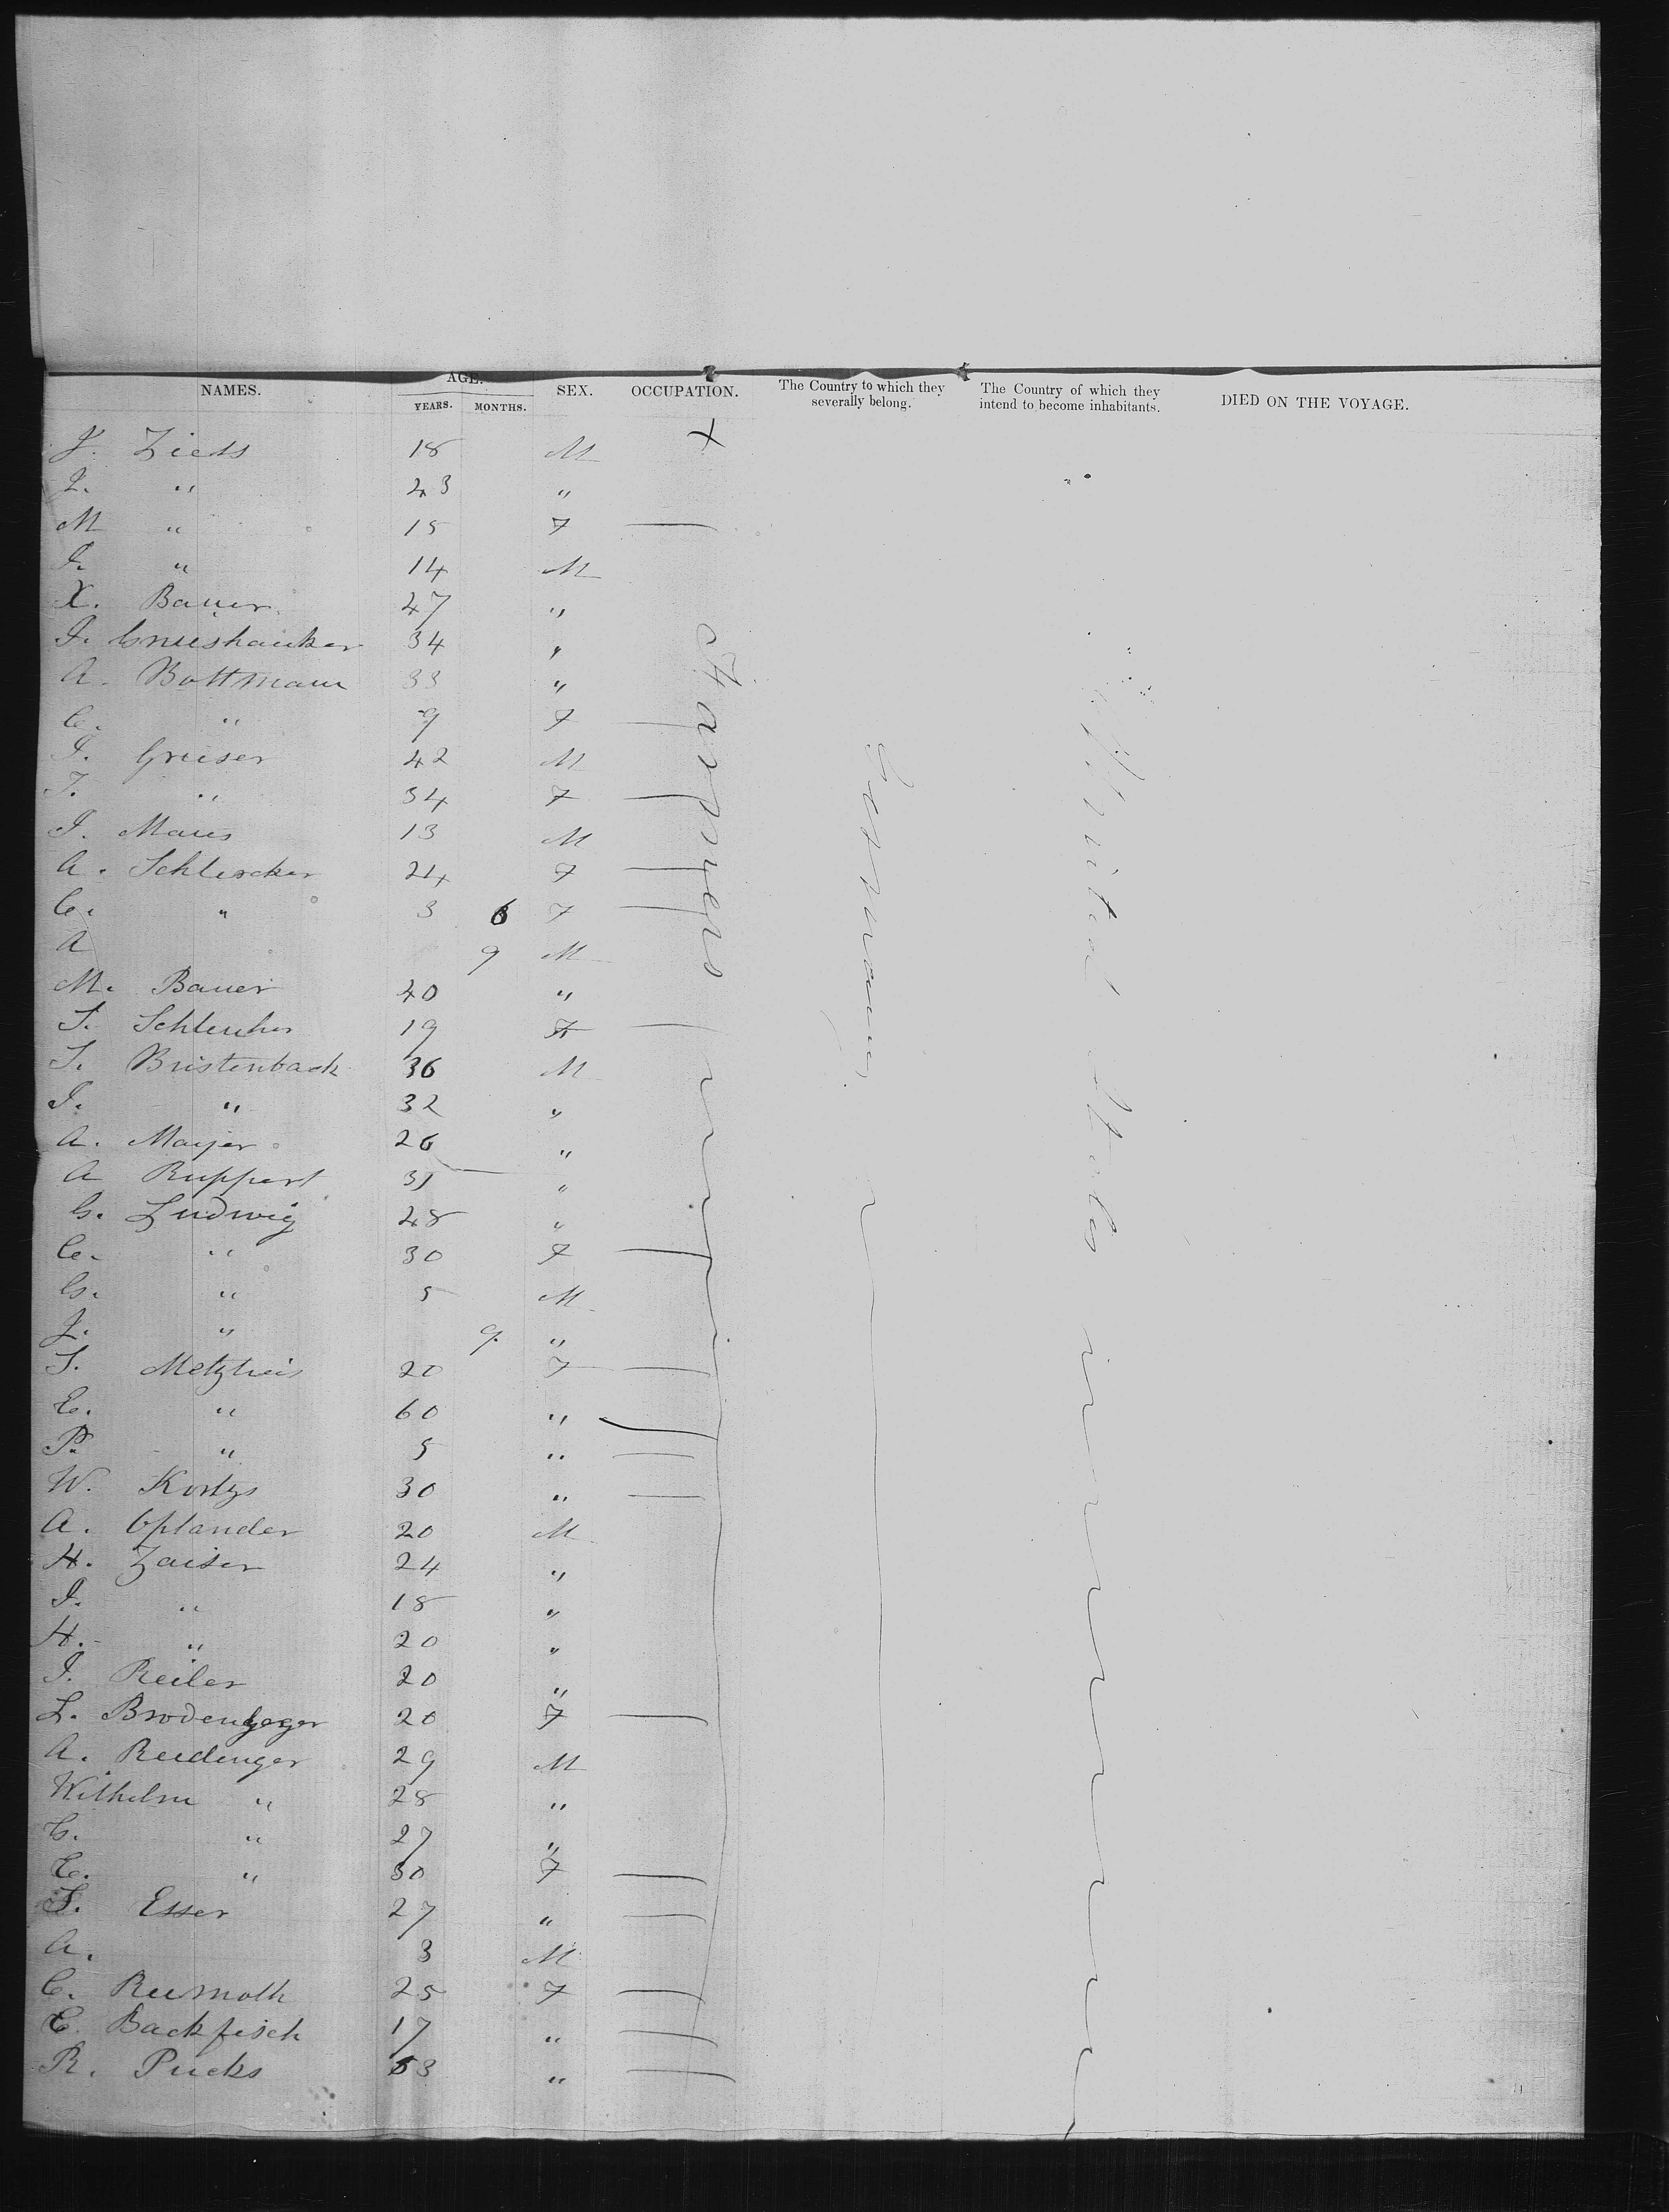 NAMES. AGE. SEX. OCCUPATION. The Country to which they severally belong. The Country of which they intend to become inhabitants. DIED ON THE VOYAGE.
YEARS. MONTHS.
J. Ziess 18 M
Farmers
Germany
United States
J. " 23 "
M " 15 F —
J. " 14 M
X. Bauer 47 "
J. 34 "
A. Bottmann 33 "
C. " 9 F —
J. Greiser 42 M
T. " 34 F —
J. Maus 13 M
A. Schlercker 24 F —
C. " 3 6 F —
A 9 M
M. Bauer 40 "
S. 19 F —
J. Bristenback 36 M
J. " 32 "
A. Mayer 26 "
A Ruppert 31 "
G. Ludwig 28 "
C. " 30 F —
G. " 5 M
J. " 9 "
S. 20 F —
E. " 60 " —
P. " 5 " —
W. Kortzs 30 " —
A. Oplander 20 M
H. Zaiser 24 "
J. " 18 "
H. " 20 "
J. Reiler 20 "
L. 20 F —
A. Reidenger 29 M
Wilhelm " 28 "
G. " 27 "
C. " 30 F —
S. Esser 27 " —
A. 3 M
C. Reumoth 25 F —
C. Backfisch 17 " —
R. Pucks 63 " —